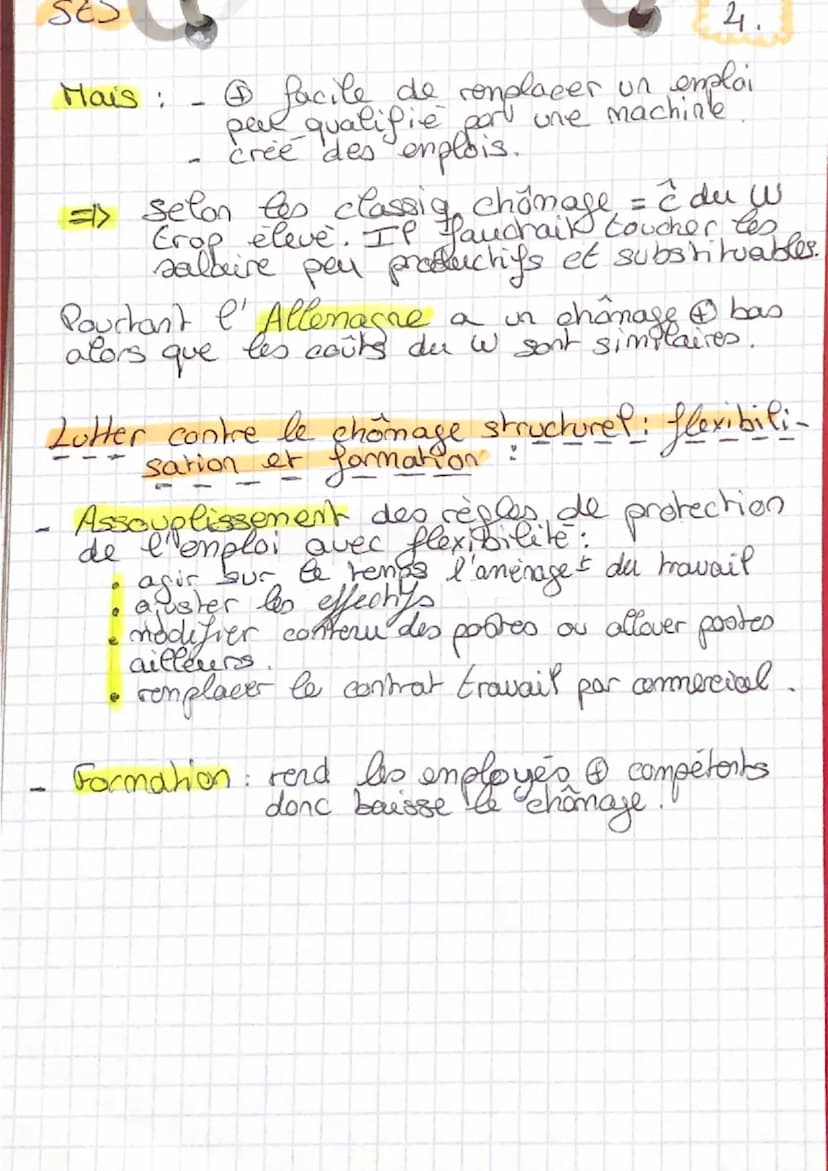 SES
4.
Mais : - ⊕ facile de remplacer un emploi
peu qualifié par une machine.
- créé des emplois.
=> selon les classiq, chômage = ĉ du W
trop élevé. Il faudrait toucher les
salaire peu productifs et substituables.
Pourtant l'Allemagne a un chômage ⊕ bas
alors que les coûts du W sont similaires.
Lutter contre le chômage structurel : flexibili-
sation et formation :
- Assouplissement des règles de protection
de l'emploi avec flexibilité :
• agir sur le temps l'aménaget du travail
• ajuster les effectifs
• modifier contenu des postes ou allouer postes
ailleurs.
• remplacer le contrat travail par commercial.
- Formation : rend les employés ⊕ compétents
donc baisse le chômage.